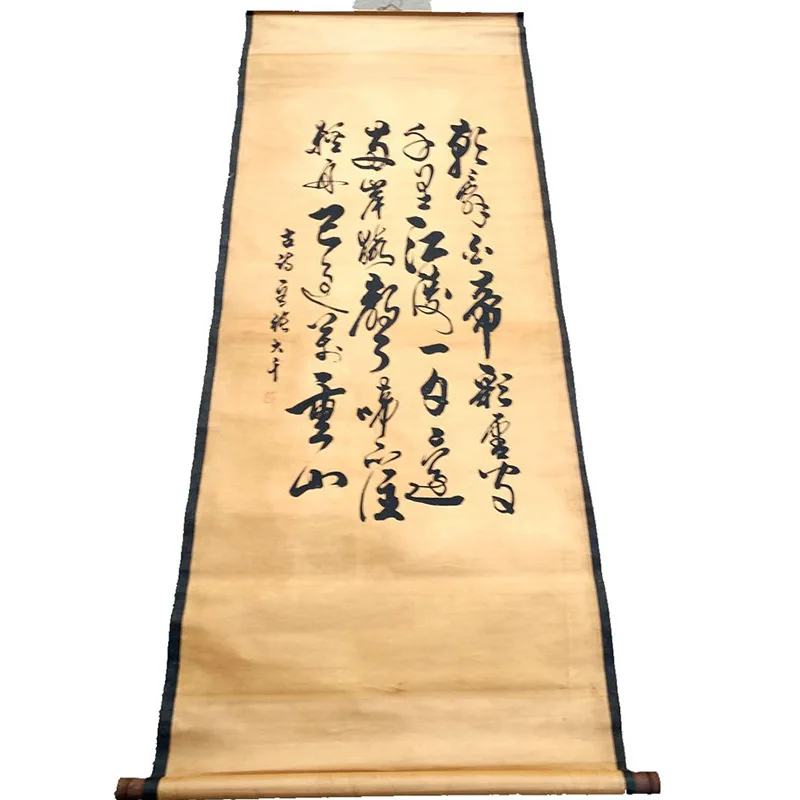 朝辞白帝彩雲间
千里江陵一日還
两岸猿聲啼不住
輕舟已过萬重山
古詩一首 張大千